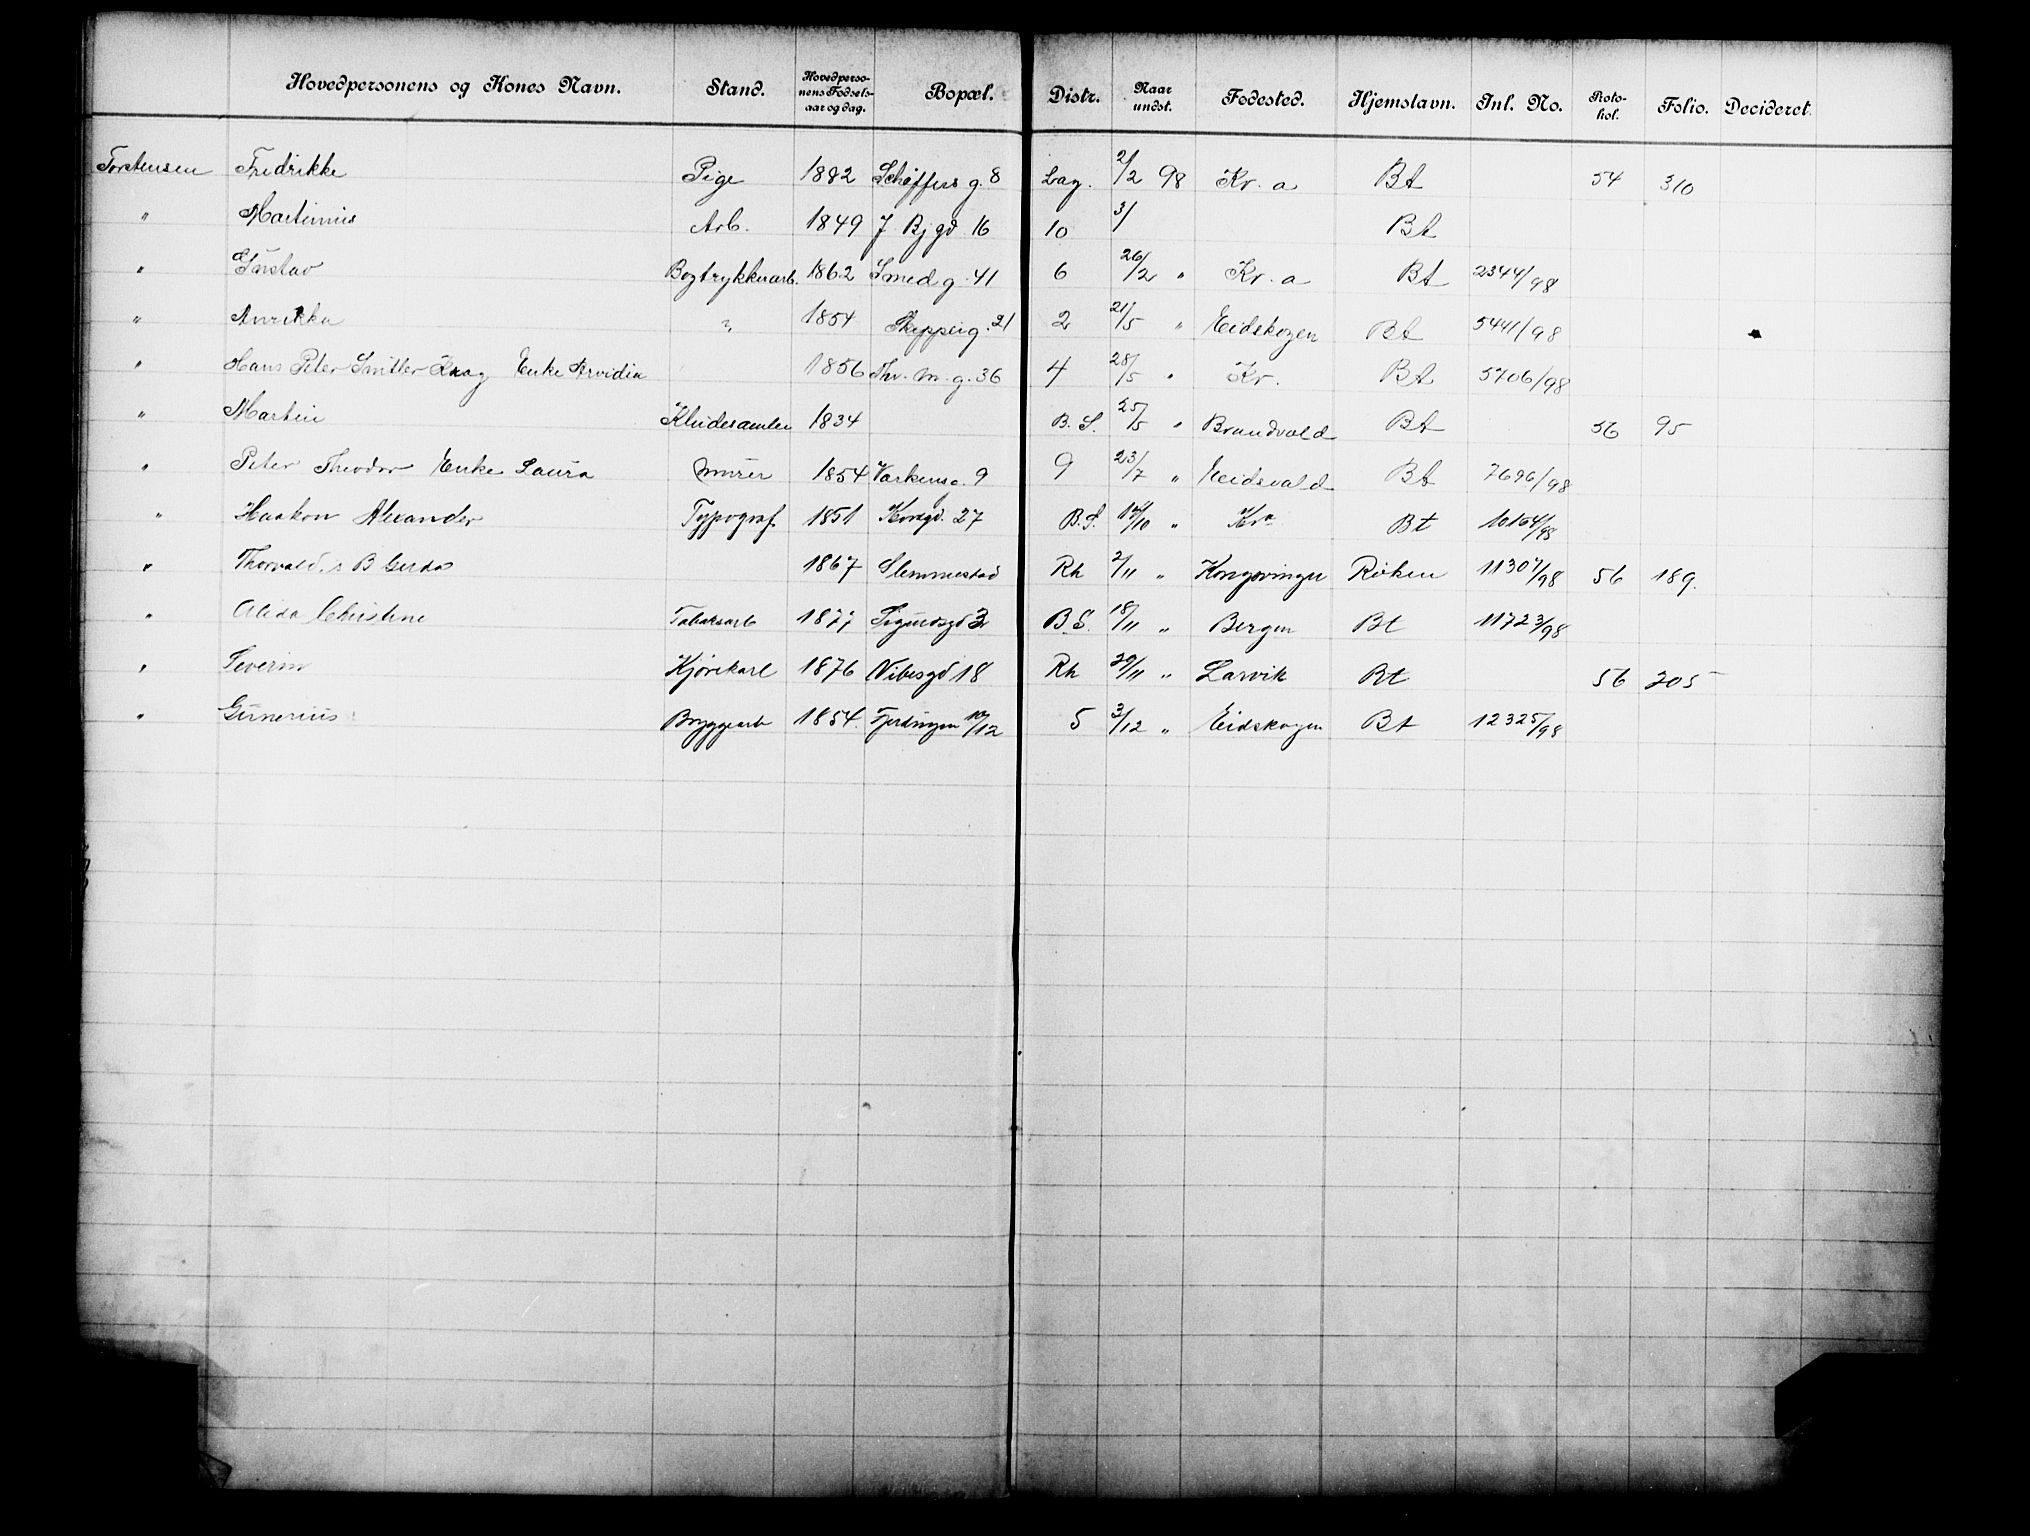 Hovedpersonens og Kones Navn. Stand. Hovedperso-nens Fødsels-aar og dag. Bopæl. Distr. Naar undst. Fødested. Hjemstavn. Inl. No. Proto-kol. Folio. Decideret.
Torstensen Fredrikke Pige 1882 Schøffers g. 8 Lag. 2/2 98 Kr. a Bt 54 310
" Martinius Arb. 1849 J Bjgd 16 10 3/ Bt
" Gustav Bogtrykkerarb. 1862 Smedg. 41 6 26/2 " Kr. a Bt 2344/98
" Anrikka " 1854 Skipperg. 21 2 21/5 " Eidskogen Bt 5441/98
" Hans Peter Enke Arvidia 1856 Thv. M. g. 36 4 28/5 " Kr. Bt 5706/98
" Martin Kludesamler 1834 B. S. 25/5 " Brandvold Bt 56 95
" Peter Theodor Enke Laura Murer 1854 9 9 23/7 " Eidsvold Bt 7696/98
" Haakon Alexander Typograf 1851 Korsgd. 27 B. S. /10 " Kra Bt 10164/98
" Thorvald B Gerda 1867 Slemmestad Rh 2/11 " Kongsvinger Røken 11307/98 56 189.
" Alida Christine Tobaksarb 1877 Sigurdsgd 3 B. S. 18/11 " Bergen Bt 11723/98
" Severin Kjørekarl 1876 Vibesgd 18 Rh 29/11 " Larvik Bt 56 205
" Gunerius Bryggearb 1854 Fjerdingen 10/12 5 3/12 " Eidskogen Bt 12325/98